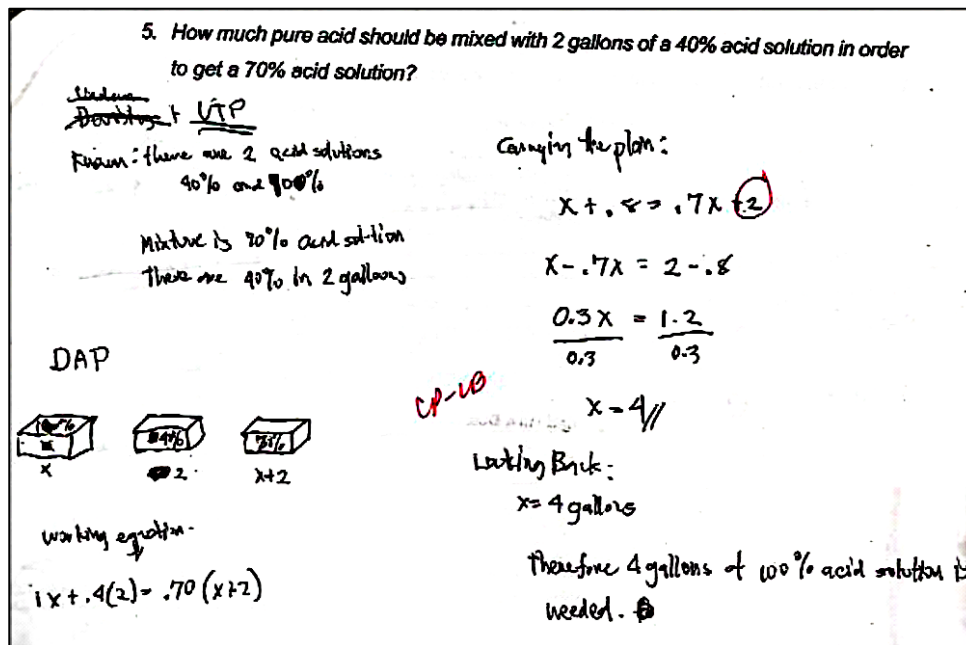 5. How much pure acid should be mixed with 2 gallons of a 40% acid solution in order
to get a 70% acid solution?
+ UTP
Known: there are 2 acid solutions
40% and 100%
Mixture is 70% acid solution
There are 40% in 2 gallons
DAP
100% 40% 70%
x 2 x+2
working equation
1x+.4(2)= .70(x+2)
CP-LB
Carrying the plan:
x+.8 = .7x +2
x-.7x = 2-.8
0.3x = 1.2
0.3 0.3
x = 4//
Looking Back:
x= 4 gallons
Therefore 4 gallons of 100% acid solution is
needed.